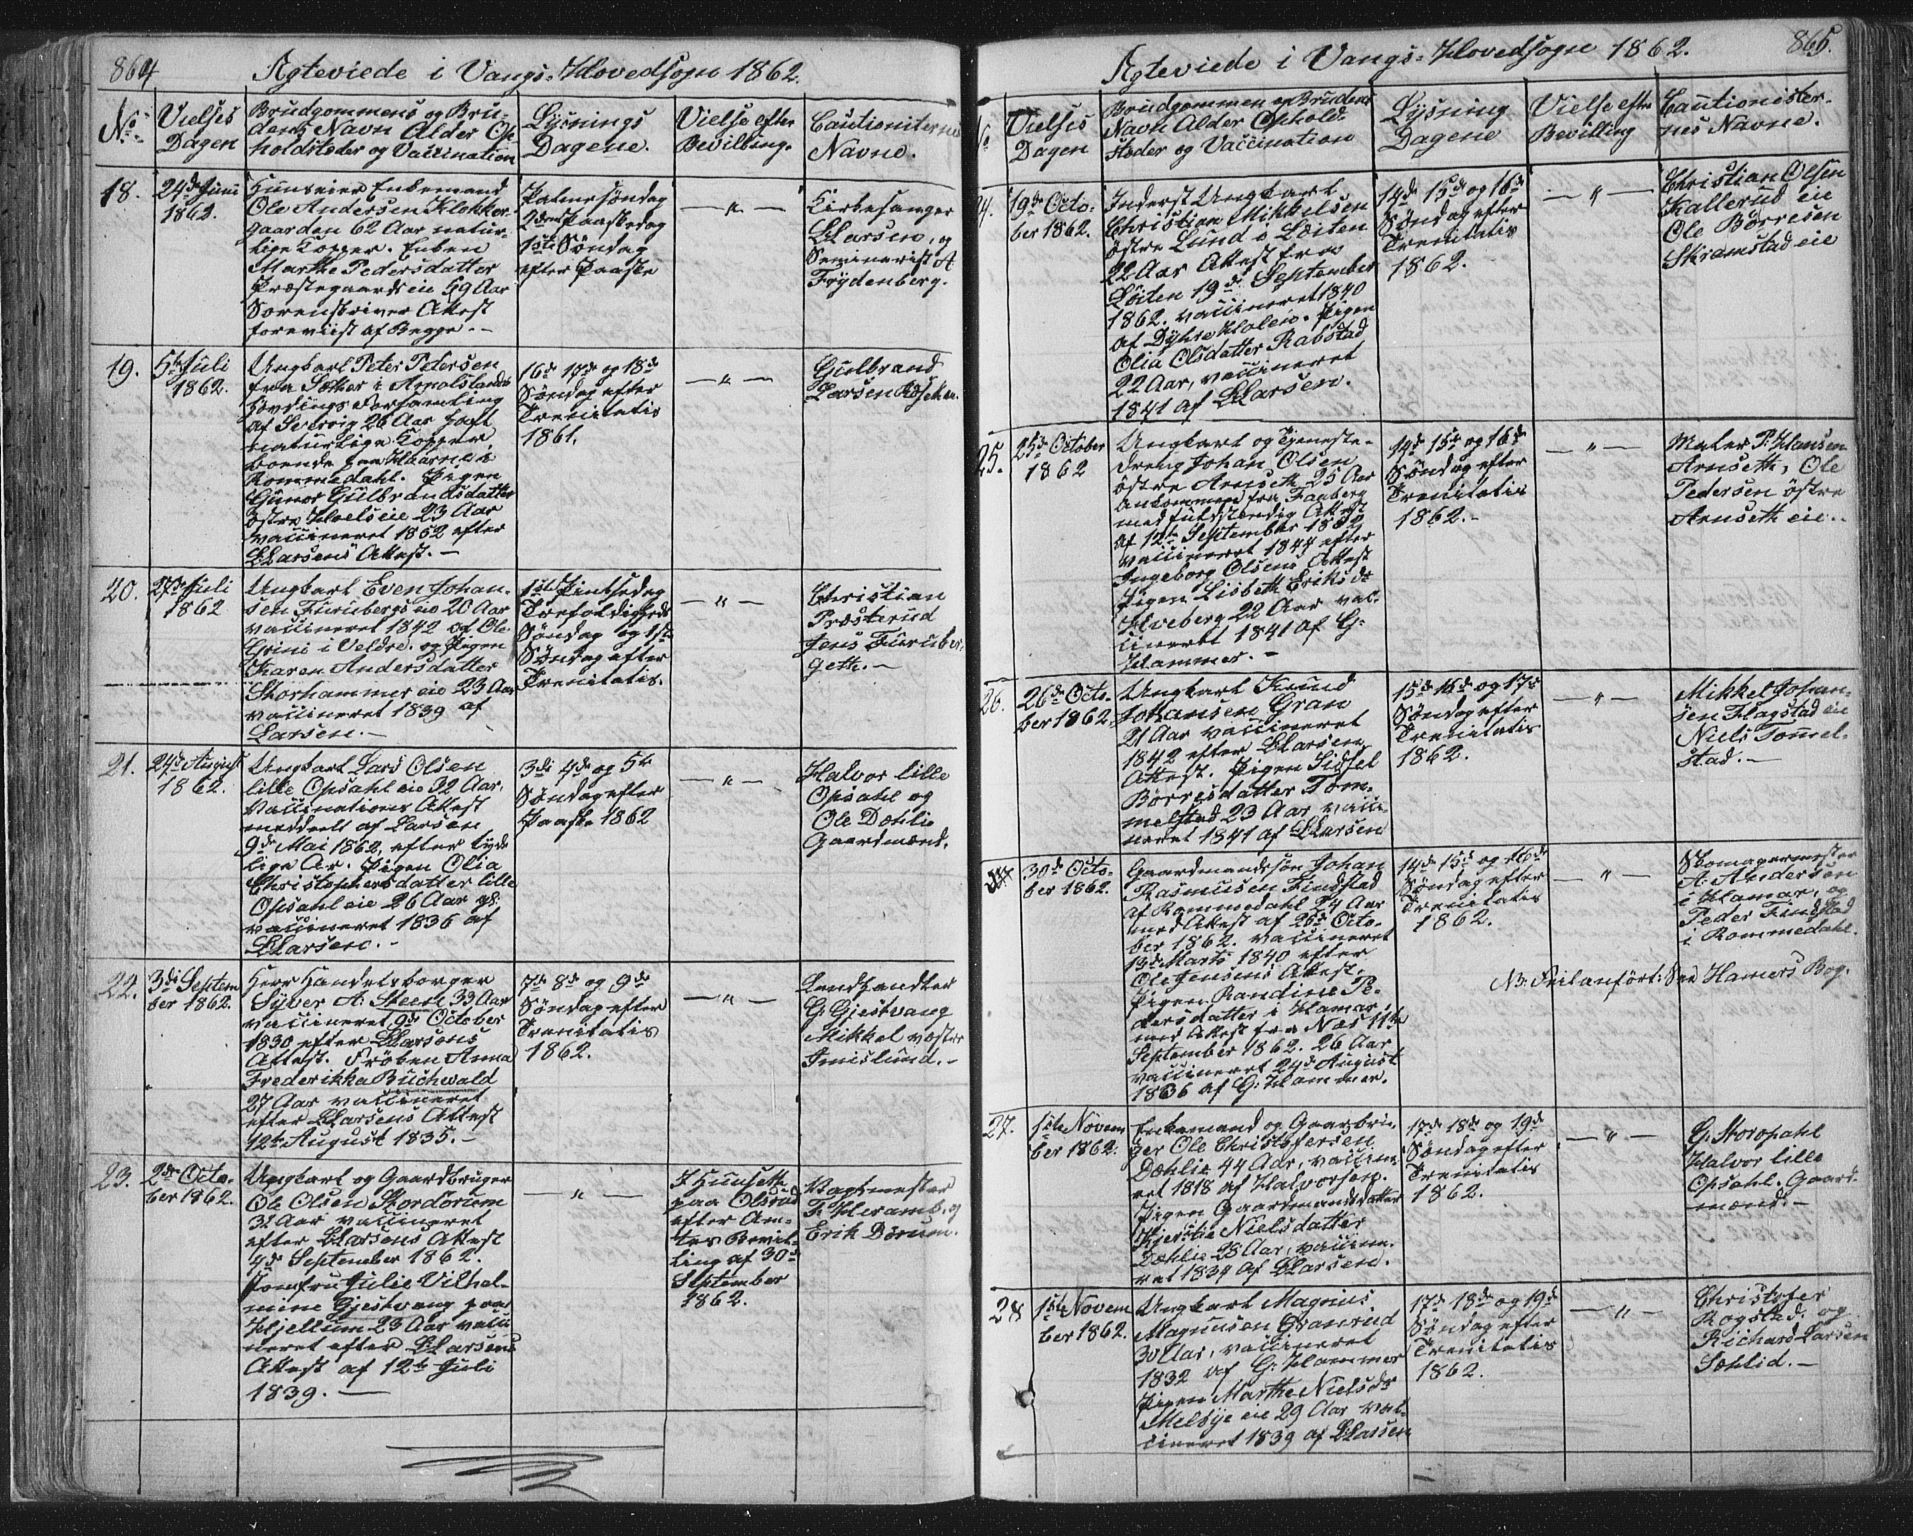 864
Ægteviede i Vangs-Hovedsogn 1862.
No.
Vielses
Dagen
Brudgommens og Bru-
dens Navn Alder Op
holdsteder og Vaccination
Lysnings
Dagene.
Vielse efter
Bevilling.
Cautionisternes
Navne.
18.
24de Juni
1862.
Huuseier Enkemand
Ole Andersen Klokker-
gaarden 62 Aar natur-
lige Kopper. Enken
Marthe Pedersdatter
Præstegaards eie 59 Aar
Sorenskriver Attest
foreviist af Begge.-
Palmesøndag
2den Paaskedag
1ste Søndag
efter Paaske
— " —
Kirkesanger
L Larsen, og
Seminarist A
Frydenberg.
19.
5te Juli
1862.
Ungkarl Peter Petersen
fra Sother i Arvalstands
Hovdings Forsamling
af Servig 26 Aar havt
naturlige Kopper,
boende paa Haarne i
Rommedahl. Pigen
Gunor Gulbrandsdatter
østre Hoelseie 23 Aar
vaccineret 1862 efter
L Larsens Attest.-
16de 17de og 18de
Søndag efter
Trenitatis
1861.
— " —
Gulbrand
Larsen
20.
27de Juli
1862
Ungkarl Even Johan-
sen Furubergseie 20 Aar
vaccineret 1842 af Ole
Grini i Veldre. og Pigen
Karen Andersdatter
Storhammer eie 23 Aar
vaccineret 1839 af
Larsen.-
1ste Pintsedag
Trefoldigheds
Søndag og 1ste
Søndag efter
Trenitatis.
— " —
Christian
Præsterud
Jens Furuber-
geth.-
21.
24de August
1862.
Ungkarl Lars Olsen
lille Opsahl eie 32 Aar.
Vaccinations Attest
meddeelt af Larsen
9de Mai 1862, efter tyde
lige Ar. Pigen Olia
Christophersdatter lille
Opsahl eie 26 Aar gl.
vaccineret 1836 af
L Larsen.-
3die 4de og 5te
Søndag efter
Paaske 1862
— " —
Halvor lille
Opsahl og
Ole Dæhlie
Gaardmænd.
22.
3die Septem
ber 1862.
Herr Handelsborger
Syver A: Steen 33 Aar
vaccineret 9de October
1830 efter L Larsens
Attest. Frøken Anna
Frederikka Buchwald
27 Aar vaccineret
efter L Larsens Attest
12te August 1835.-
7de 8de og 9de
Søndag efter
Trenitatis
1862.
— " —
Landhandler
G. Gjestvang
Mikkel væstre
Imislund.-
23.
2den Octo-
ber 1862.
Ungkarl og Gaardbruger
Ole Olsen Skordorum
32 Aar vaccineret
efter L Larsens Attest
4de September 1862.
Jomfru Julie Vilhel-
mine Gjestvang paa
Hjellum 23 Aar vacci
neret efter L Larsens
Attest af 12te Juli
1839.—
— " —
I Huusette
paa Olsrud
efter Am-
tes Bevil-
ling af 30te
September
1862.
Vagtmester
F. Heramb, og
Erik Børum.

Ægteviede i Vangs-Hovedsogn 1862.
865.
No
Vielses
Dagen
Brudgommen og Brudens
Navn Alder Ophold
steder og Vaccination
Lysning
Dagene
Vielse efter
Bevilling
Cautionister-
nes Navne.
24.
19de Octo-
ber 1862.
Inderst Ungkarl
Christian Mikkelsen
østre Lund i Løiten
22 Aar Attest fra
Løiten 19de September
1862. vaccineret 1840
af Dyhre Holen. Pigen
Olia Olsdatter Rabstad
22 Aar, vaccineret
1841 af L Larsen.
14de 15de og 16de
Søndag efter
Trenitatis
1862.
— " —
Christian Olsen
Kallerud eie
Ole Børresen
Skramstad eie
25.
25de October
1862
Ungkarl og Tjeneste-
dreng Johan Olsen
østre Arnseth 25 Aar
ankommen fra Faaberg
med fuldstændig Attest
af 12te September 1862
vaccineret 1844 efter
Ingeborg Olsens Attest
Pigen Lisbeth Eriksdr
Hveberg 22 Aar vac-
cineret 1841 af G:
Hammer.-
14de 15de og 16de
Søndag efter
Trenitatis
1862.-
— " —
Maler P: Hansen
Arnseth, Ole
Pedersen østre
Arnseth eie.-
26.
26de Octo-
ber 1862.
Ungkarl Knud
Johansen Gran
21 Aar vaccineret
1842 efter L Larsen
Attest. Pigen Sidsel
Børresdatter Tom-
melstad 23 Aar vacci
neret 1841 af L Larsen
15de 16de og 17de
Søndag efter
Trenitatis
1862.
— " —
Mikkel Johan-
sen Flagstad eie
Niels Tommel-
stad.-
30de Octo-
ber 1862.
Gaardmandssøn Johan
Rasmusen Finstad
af Rommedahl 24 Aar
med Attest af 26de Octo-
ber 1862. vaccineret
13de Marts 1840 efter
Ole Jensens Attest.
Pigen Randine Pe-
dersdatter i Hamar,
med Attest fra Næs 11te
September 1862. 26 Aar
vaccineret 24de August
1836 af G: Hammer.
14de 15de og 16de
Søndag efter
Trenitatis
1862.
— " —
Skomagermester
A: Andersen
i Hamar, og
Peder Finstad
i Rommedahl.
NB: Feilanført: See Hamers Bog.
27.
1ste Novem
ber 1862.
Enkemand og Gaarbru-
ger Ole Christofersen
Dæhlie 44 Aar, vaccine-
ret 1818 af Halvorsen.
Pigen Gaardmandsdatter
Kjerstie Nielsdatter
Dæhlie 28 Aar, vaccine-
ret 1834 af L Larsen.
17de 18de og 19de
Søndag efter
Trenitatis
1862.
— " —
G: Storopahl
Halvor lille
Opsahl. Gaard-
mænd.-
28
1ste Novem
ber 1862.
Ungkarl Magnus
Magnusen Granrud
30 Aar, vaccineret
1832 af G: Hammer
Pigen Marthe Nielsdr
Melbye eie 29 Aar vac-
cineret 1839 af L Larsen
17de 18de og 19de
Søndag efter
Trenitatis
1862.
— " —
Christofer
Rogstad, og
Richard Larsen
Sæhlid.-